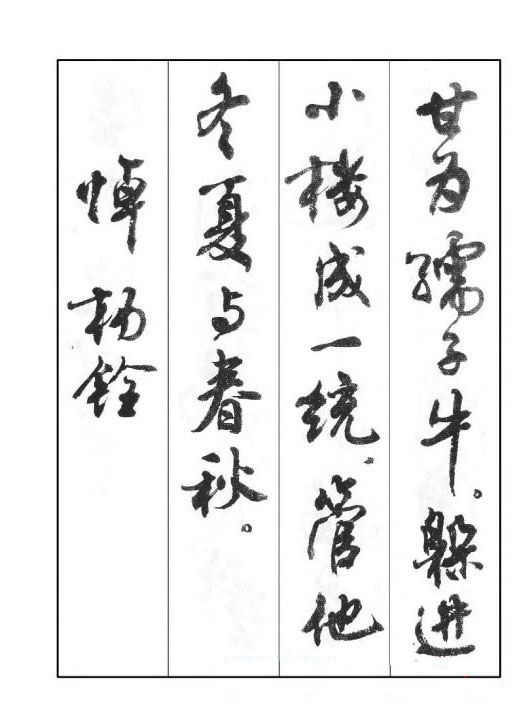 甘为孺子牛。躲进
小楼成一统,管他
冬夏与春秋。
悼杨铨